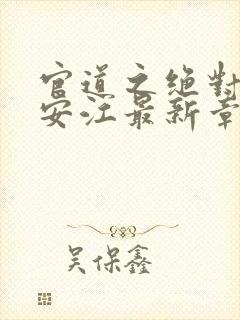 官道之绝对
安江最新章
吴保鑫